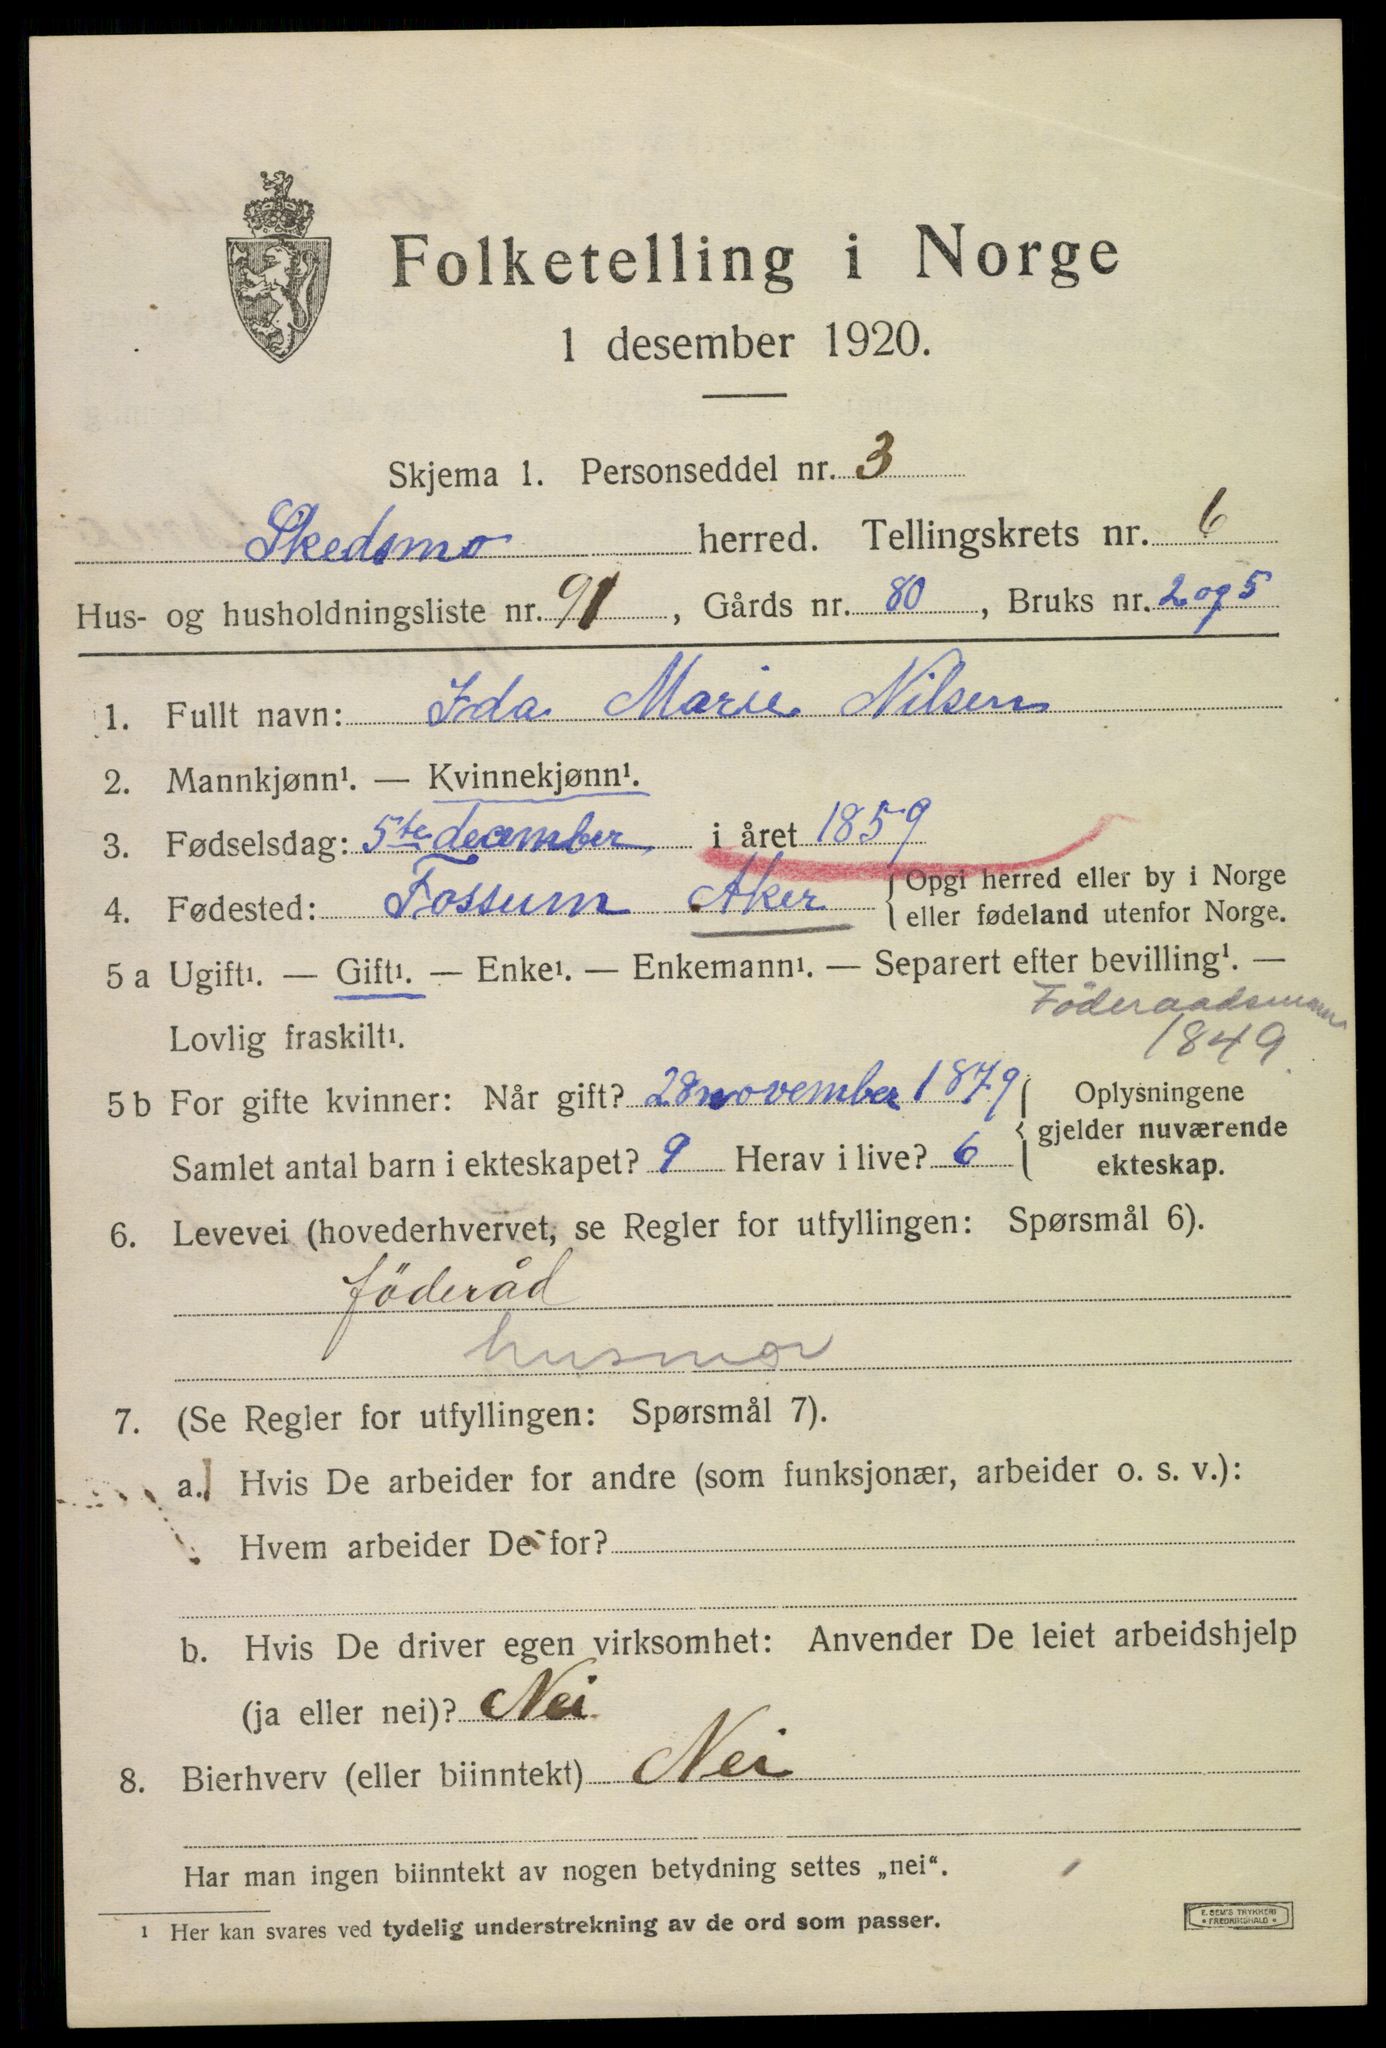 Folketelling i Norge
1 desember 1920.
Skjema 1. Personseddel nr. 3
Skedsmo herred. Tellingskrets nr. 6
Hus- og husholdningsliste nr. 91, Gårds nr. 80, Bruks nr. 2 og 5
1. Fullt navn: Ida Marie Nilsen
2. Mannkjønn¹. — Kvinnekjønn¹.
3. Fødselsdag: 5te december i året 1859
4. Fødested: Fossum Aker { Opgi herred eller by i Norge
eller fødeland utenfor Norge.
5 a Ugift¹. — Gift¹. — Enke¹. — Enkemann¹. — Separert efter bevilling¹. —
Föderaadsmann
Lovlig fraskilt¹. 1849
5 b For gifte kvinner: Når gift? 28 november 1879 { Oplysningene
gjelder nuværende
Samlet antal barn i ekteskapet? 9 Herav i live? 6 ekteskap.
6. Levevei (hovederhvervet, se Regler for utfyllingen: Spørsmål 6).
föderåd
husmor
7. (Se Regler for utfyllingen: Spørsmål 7).
a. Hvis De arbeider for andre (som funksjonær, arbeider o. s. v.):
Hvem arbeider De for?
b. Hvis De driver egen virksomhet: Anvender De leiet arbeidshjelp
(ja eller nei)? Nei
8. Bierhverv (eller biinntekt) Nei
Har man ingen biinntekt av nogen betydning settes „nei“.
¹ Her kan svares ved tydelig understrekning av de ord som passer.
E. SEM'S TRYKKERI
• FREDRIKSHALD •